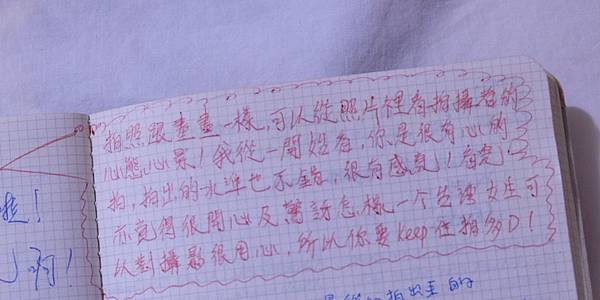 拍照跟畫畫一樣,可以從照片裡看拍攝者的
心態,心景!我從一開始看,你是很有心的
拍,拍出的水準也不錯,很有感覺!看完
亦覺得很開心及驚訝怎樣一个生讀女生可
以對攝影很用心,所以你要keep住拍多D!
啦!
啊!
拍出
的